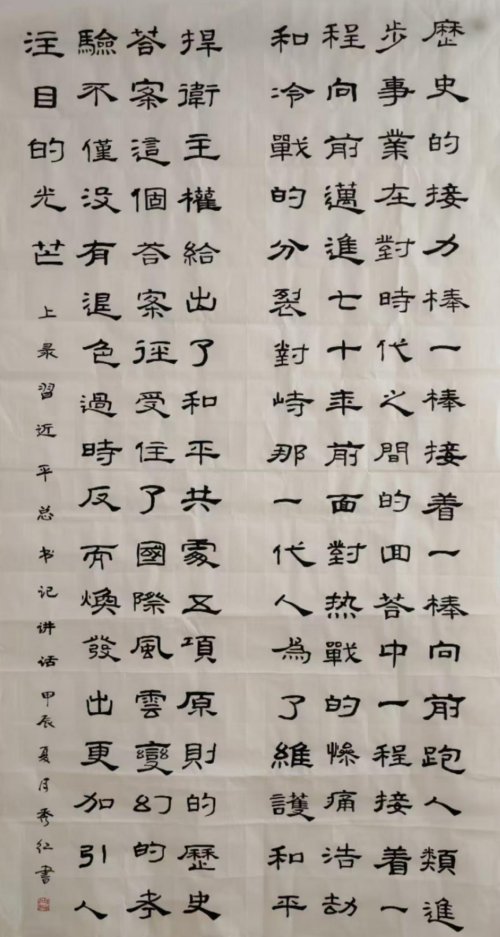 歷史的接力棒一棒接着一棒向前跑人類進
步事業在對時代之間的回答中一程接着一
程向前邁進七十年前面對热戰的慘痛浩劫
和冷戰的分裂對峙那一代人為了維護和平
捍衛主權給出了和平共處五項原則的歷史
答案這個答案徑受住了國際風雲變幻的考
驗不僅没有退色過時反而煥發出更加引人
注目的光芒
上录習近平总书记讲话甲辰夏月秀红書